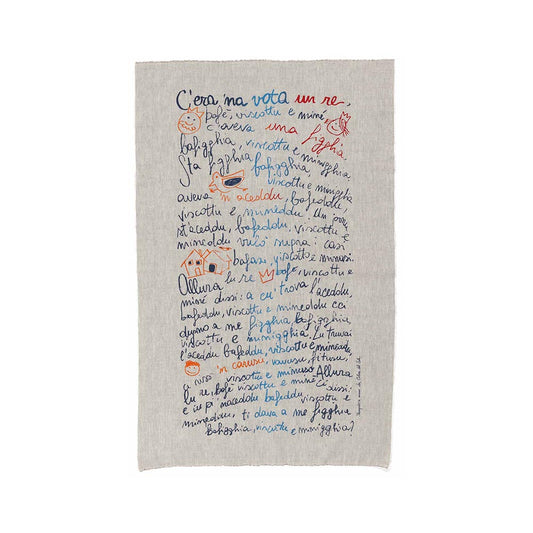 C'era 'na vota un re,
bafè, viscottu e minè
c'aveva una figghia,
bafigghia, viscottu e minigghia
Sta figghia bafigghia,
viscottu e minigghia
aveva 'n aceddu, bafeddu,
viscottu e mineddu. Un jornu
st'aceddu, bafeddu, viscottu e
mineddu vulò supra i casi
bafasi, viscottu e minnasi.
Allura lu re bafè, viscottu e
minè dissi: a cu trova l'aceddu,
bafeddu, viscottu e mineddu cci
dugno a me figghia, bafigghia
viscottu e minigghia. Lu truvai
l'aceddu bafeddu, viscottu e mineddu
'n carusu, vavusu, fitusu,
viscottu e minusu. Allura
lu re, bafè viscottu e minè dissi:
e iu pi n'aceddu bafeddu, viscottu e
mineddu, ti dava a me figghia
bafigghia, viscottu e minigghia?